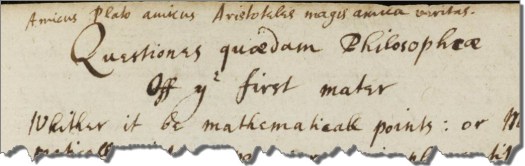 Amicus Plato amicus Aristoteles magis amica veritas.
Questiones quædam Philosophcæ
Off yᵉ first mater
Whither it be mathematicall points: or